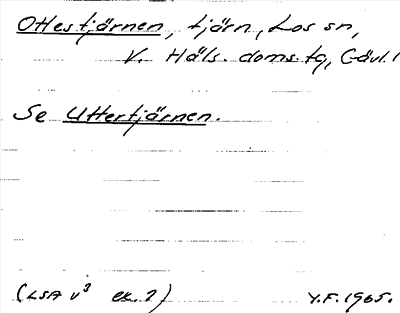 Ottestjärnen, tjärn, Los sn,
V. Häls. doms.tg, Gävl. l
Se Uttertjärnen.
(LSA v³ ex. 2) Y.F. 1965.